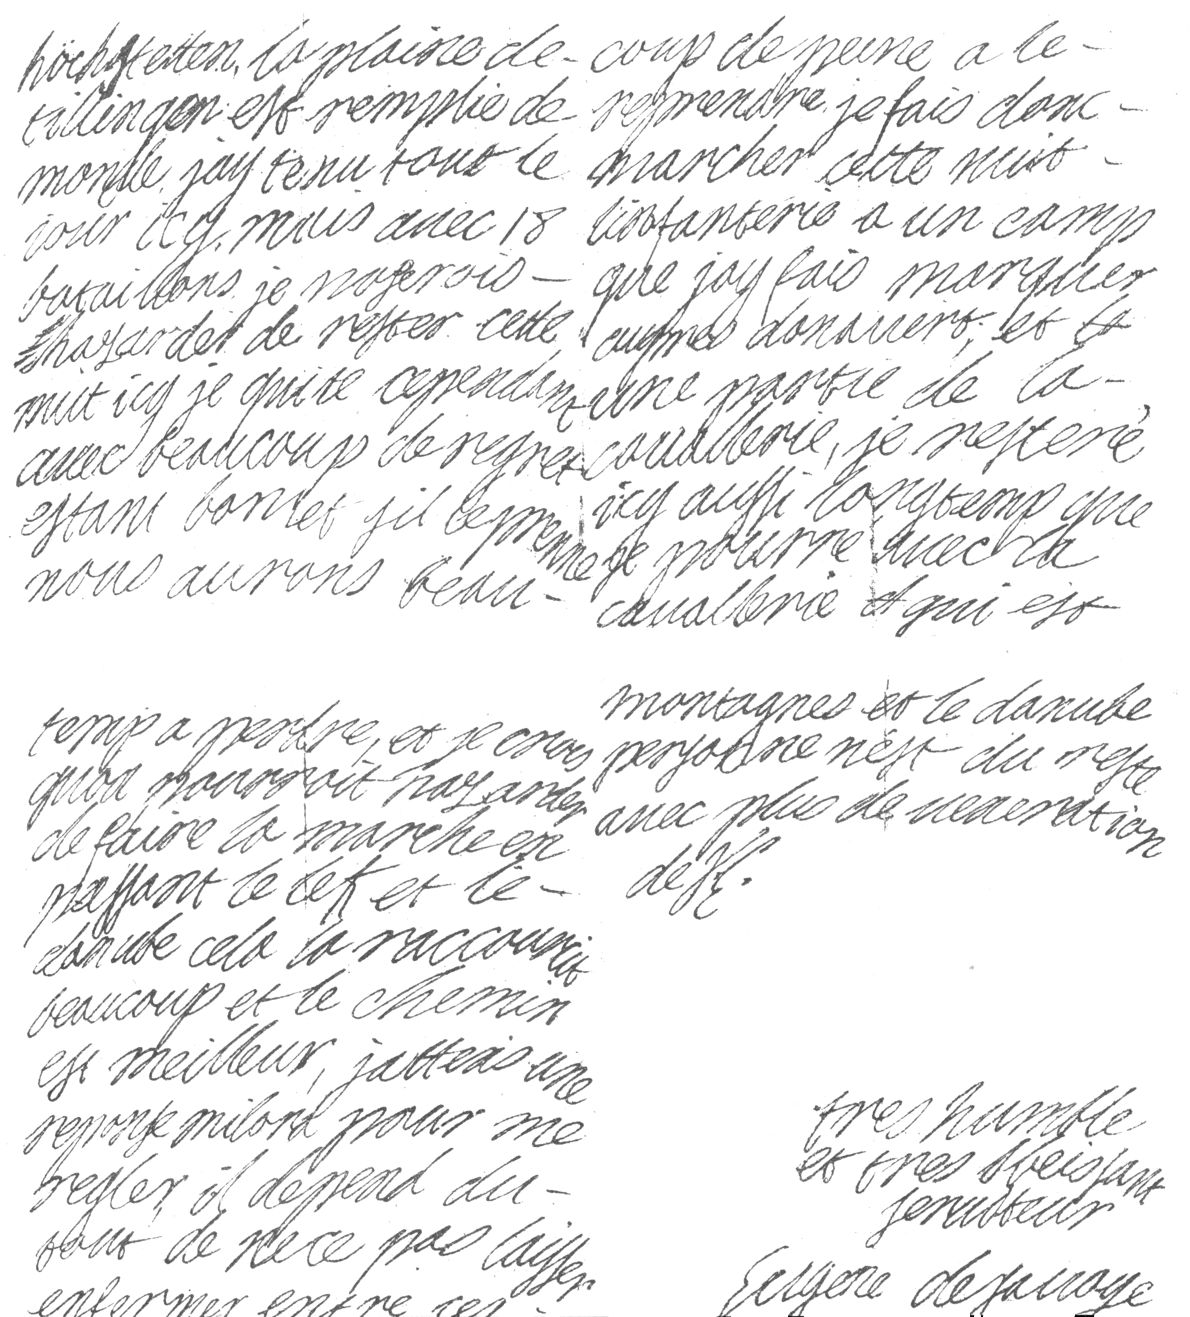 höchstetten. la plaine de-
tillingen est remplie de
monde. jay tenu tout le
jour icy. mais auec 18
bataillons je noserois -
hazarder de rester cette
nuit icy je quite cependant
auec beaucoup de regret
estant bon et sil le prenne
nous aurons beau-
coup de peine a le -
reprendre. je fais donc -
marcher cette nuit -
linfanterie a un camp
que jay fais marquer
aupres donauert, et
une partie de la -
cauallerie, je resteré
icy aussi longtemp que
je pourre auec la
cauallerie et qui est
temp a perdre, et je crois
quon pourroit hazarder
de faire la marche en
passant le lek et le -
danube cela la raccourcit
beaucoup et le chemin
est meilleur, jattens une
reponse milord pour me
regler, il depend du -
tout de ne ce pas laisser
enfermer entre ces -
montagnes et le danube
personne nest du reste
auec plus de ueneration
de
tres humble
et tres obeissant
seruiteur
Eugene de sauoye